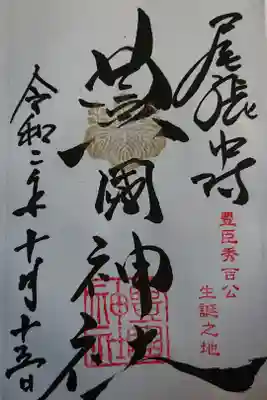 尾張中村
豐臣秀吉公
生誕之地
豊國神社
豊國
神社
令和二年十月